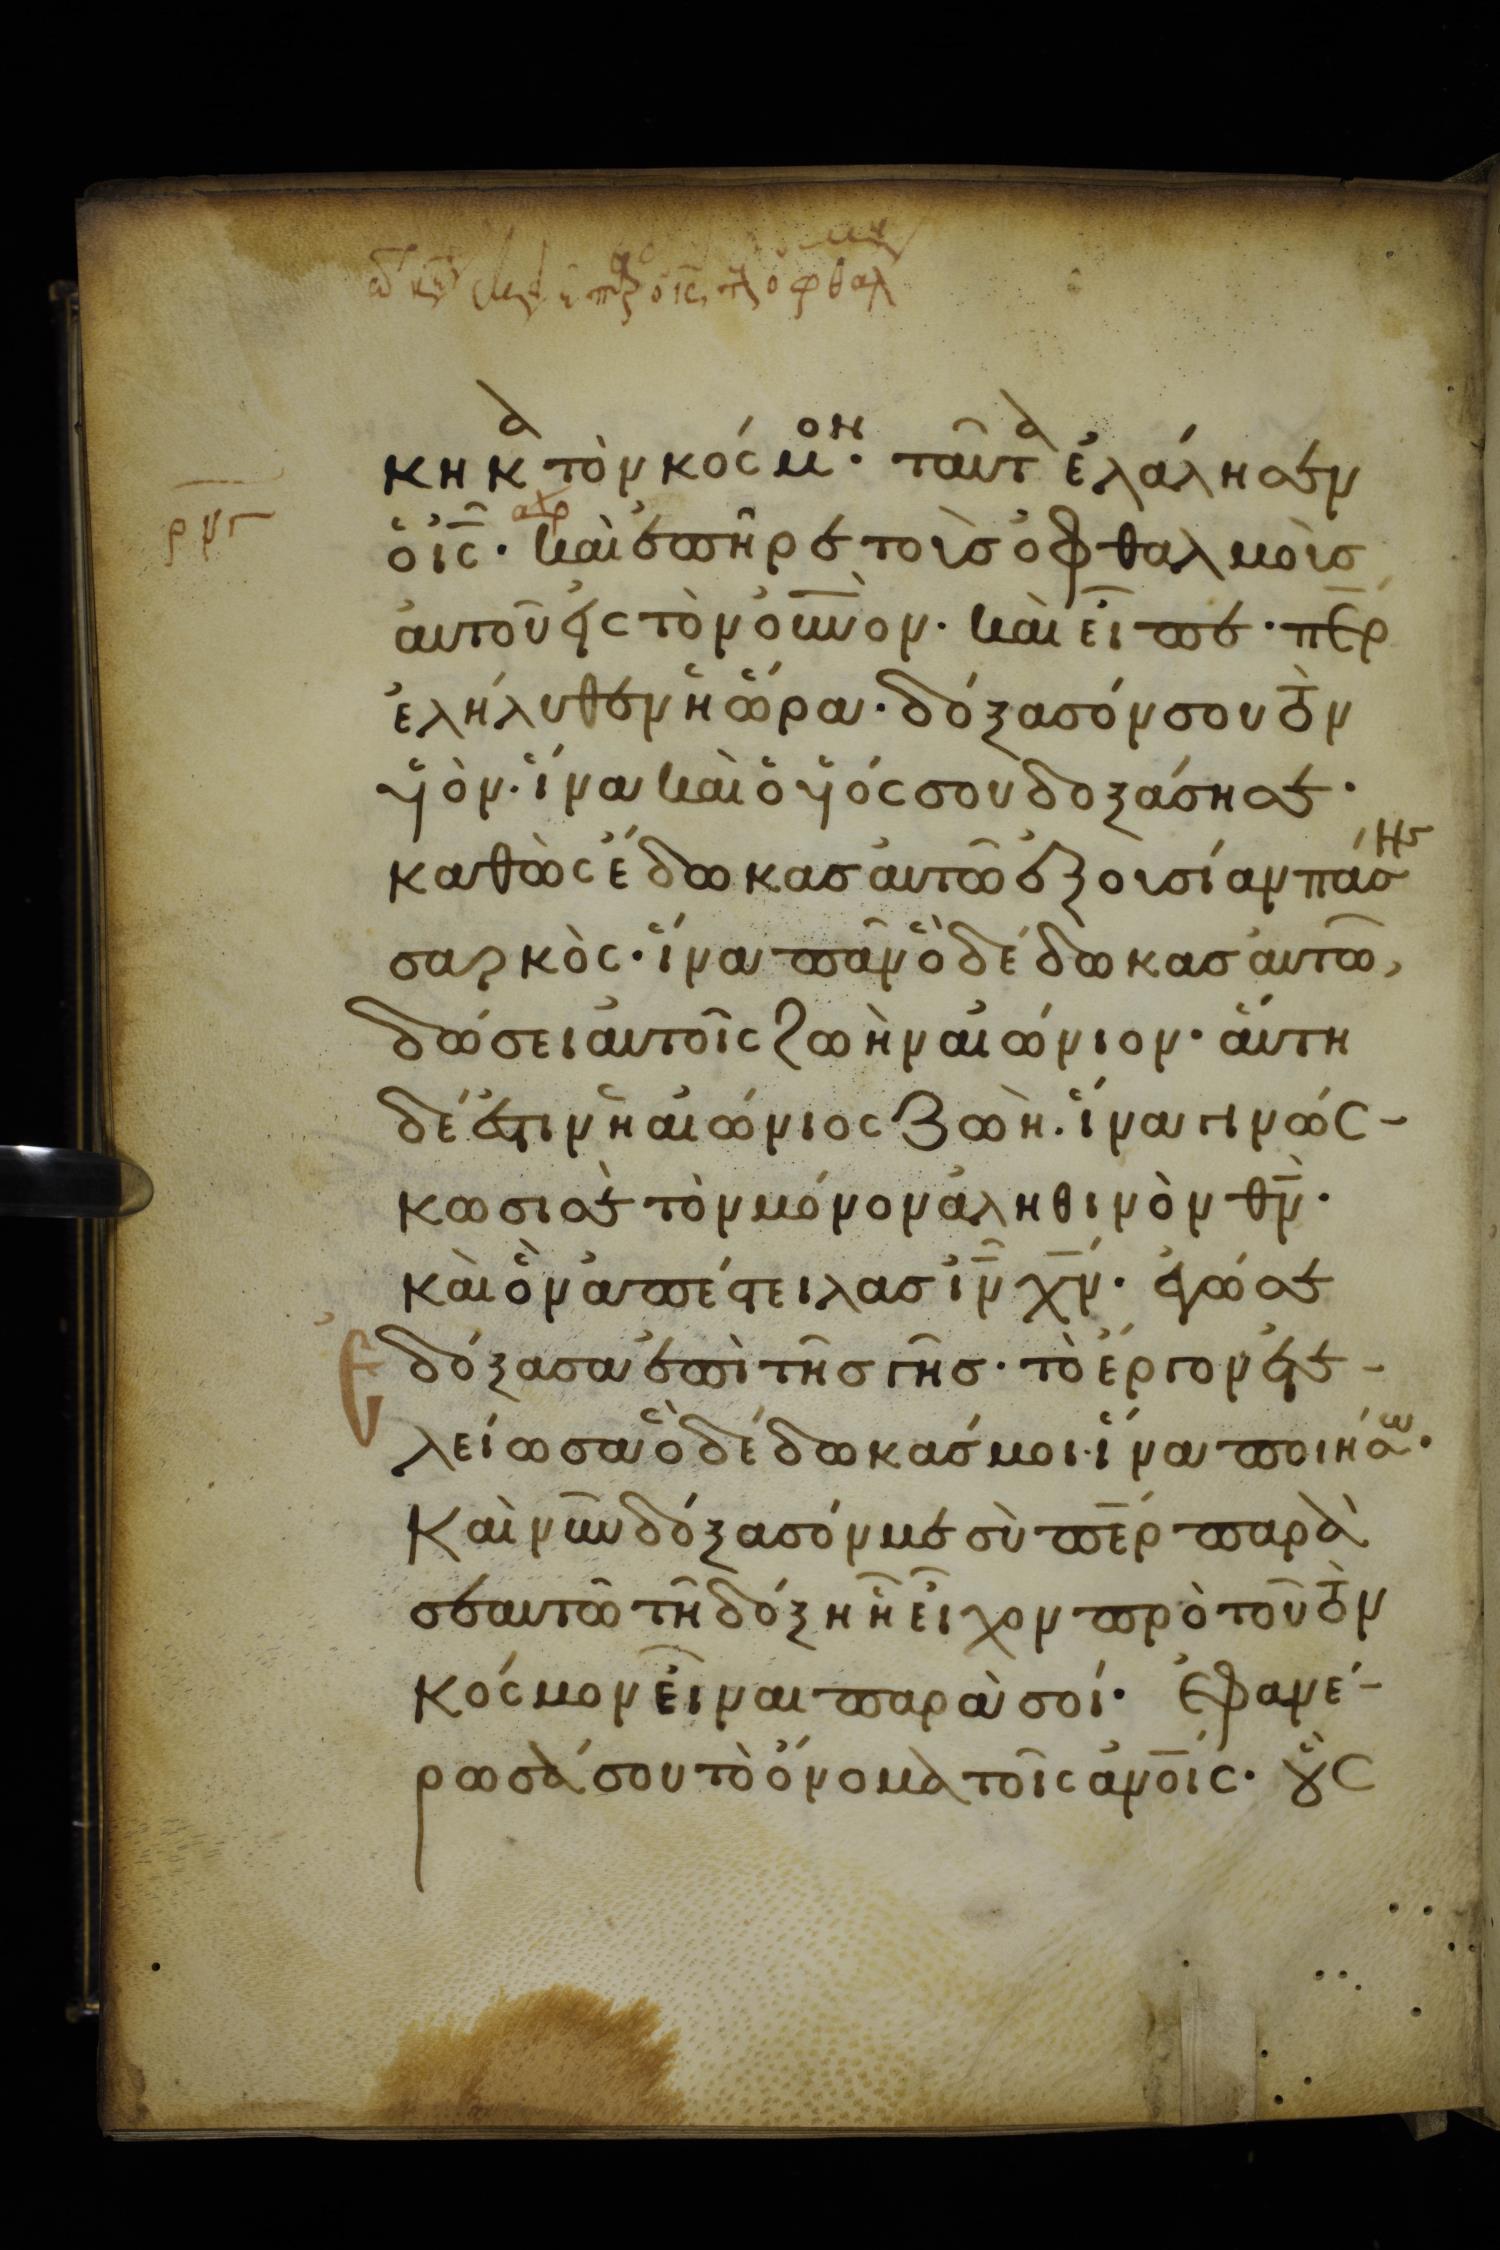 ρνγ
κηκα τὸν κόσμον· ταῦτα ἐλάλησεν
ὁ ις· καὶ ἐπῆρε τοὺς ὀφθαλμοὺς
αὐτοῦ εἰς τὸν οὐνον· καὶ εἶπε· περ
ἐλήλυθεν ἡ ὥρα· δόξασόν σου τὸν
υἱὸν· ἵνα καὶ ὁ υἱός σου δοξάσῃ σε·
καθὼς ἔδωκας αὐτῶ ἐξουσίαν πάσης
σαρκὸς· ἵνα πᾶν ὃ δέδωκας αὐτῶ,
δώσει αὐτοῖς ζωὴν αἰώνιον· αὕτη
δέ ἐστιν ἡ αἰώνιος ζωὴ· ἵνα γινώσ-
κωσι σὲ τὸν μόνον ἀληθινὸν θν·
καὶ ὃν ἀπέστειλας ιν χν· ἐγώ σε
ἐδόξασα ἐπὶ τῆς γῆς· τὸ ἔργον ἐτε-
λείωσα ὃ δέδωκάς μοι· ἵνα ποιήσω·
Καὶ νῦν δόξασόν με σὺ περ παρὰ
σεαυτῶ τῆ δόξη ἧ εἶχον πρὸ τοῦ τὸν
κόσμον εἶναι παρὰ σοί· Ἐφανέ-
ρωσά σου τὸ ὄνομα τοῖς ἀνοις· οὓς